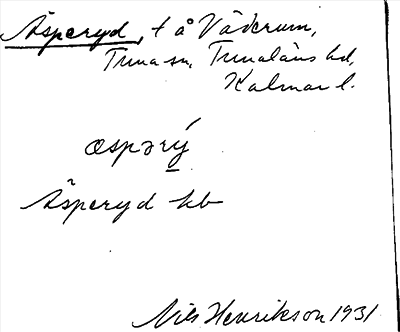 Äsperyd, t å Väderum,
Tuna sn, Tunaläns hd,
Kalmar l.
æspərý
Äsperyd kb
Nils Henrikson 1931